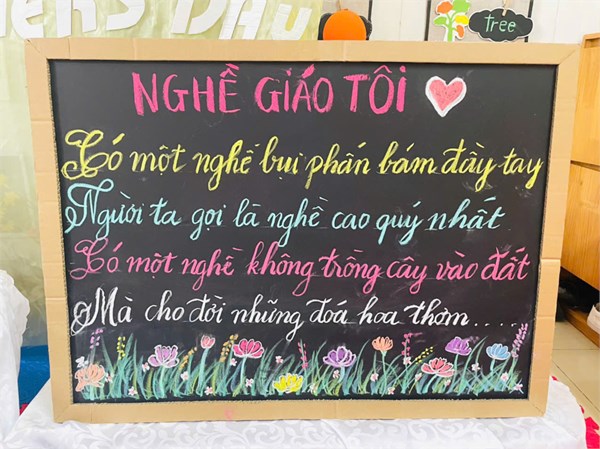 ERS DAY
tree
NGHỀ GIÁO TÔI
Có một nghề bụi phấn bám đầy tay
Người ta gọi là nghề cao quý nhất
Có một nghề không trồng cây vào đất
Mà cho đời những đoá hoa thơm.....